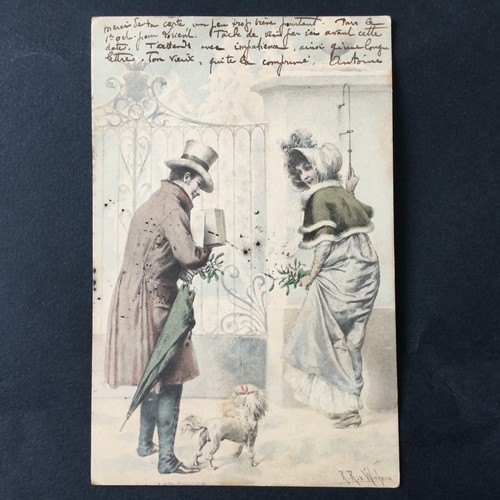 merci de ta carte un peu trop brève pourtant. Pars le
1er oct. pour Tâche de par ici avant cette
date. T'attends avec impatience, ainsi qu'une longue
lettre, Ton vieux, qui te comprime, Antoine